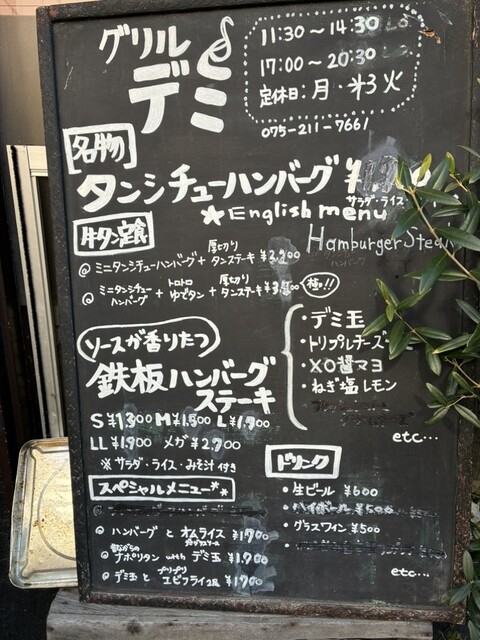 グリル
デミ
11:30～14:30 Lo
17:00～20:30 Lo
定休日：月・第3火
075-211-7661
名物
タンシチューハンバーグ ¥
サラダ・ライス
★English menu
牛タン定食
Hamburger Steak
ハンバーグ
◎ミニタンシチューハンバーグ + 厚切りタンステーキ
◎ミニタンシチューハンバーグ + トロトロゆでタン + 厚切りタンステーキ 極!!
ソースが香りたつ
鉄板ハンバーグ
ステーキ
・デミ玉
・トリプルチーズ
・XO醤マヨ
・ねぎ塩レモン
etc…
S ¥1,300 M ¥1,500 L ¥1,700
LL ¥1,900 メガ ¥2,700
※サラダ・ライス・みそ汁付き
スペシャルメニュー**
◎ハンバーグとオムライス ¥1,700
◎昔ながらのナポリタン with デミ玉 ¥1,700
◎デミ玉とプリプリエビフライ2尾 ¥1700
ドリンク
・生ビール ¥600
・ハイボール ¥500
・グラスワイン ¥500
etc…